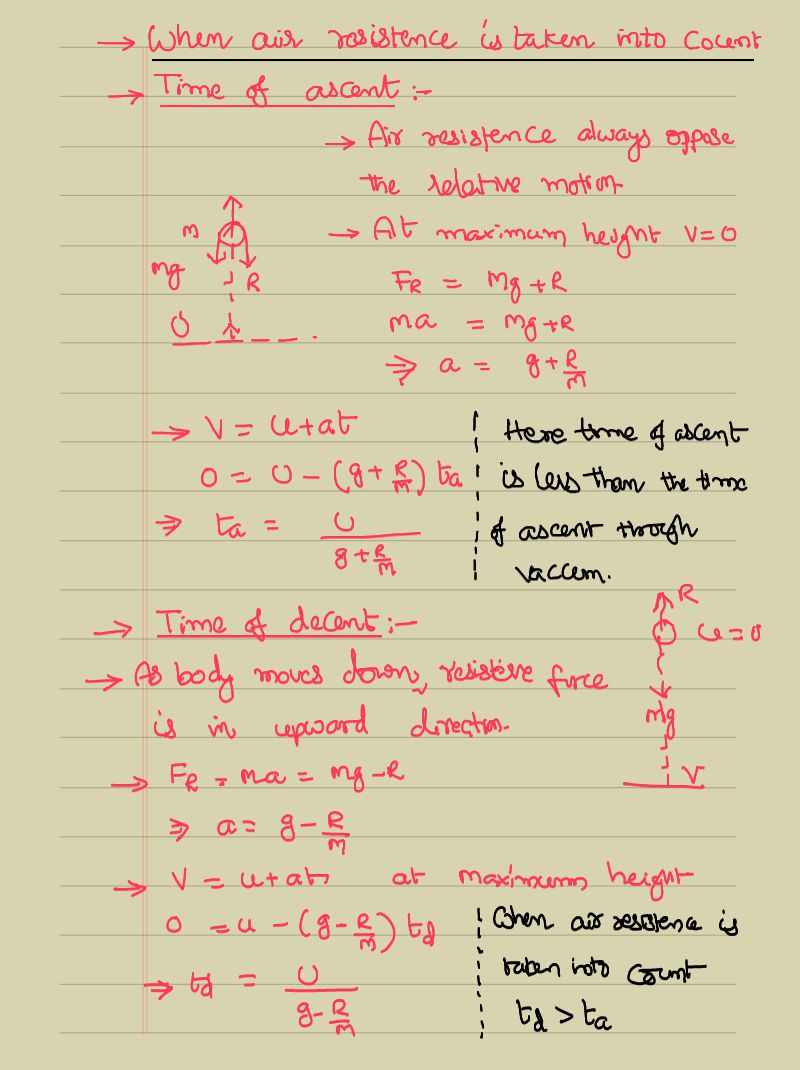 → When air resistence is taken into Cocent
→ Time of ascent :-
→ Air resistence always oppose
the relative motion
→ At maximum height V=0
m
mg
R
U
F_R = mg + R
ma = mg + R
⇒ a = g + R/m
→ V = u + at
0 = U - (g + R/m) t_a
⇒ t_a = U / (g + R/m)
Here time of ascent
is less than the time
of ascent trough
vaccem.
→ Time of decent :-
→ As body moves down, resistive force
is in upward direction.
R
u = 0
mg
V
→ F_R = ma = mg - R
⇒ a = g - R/m
→ V = u + at, at maximum height
0 = u - (g - R/m) t_d
⇒ t_d = U / (g - R/m)
When air resistence is
taken into Count
t_d > t_a